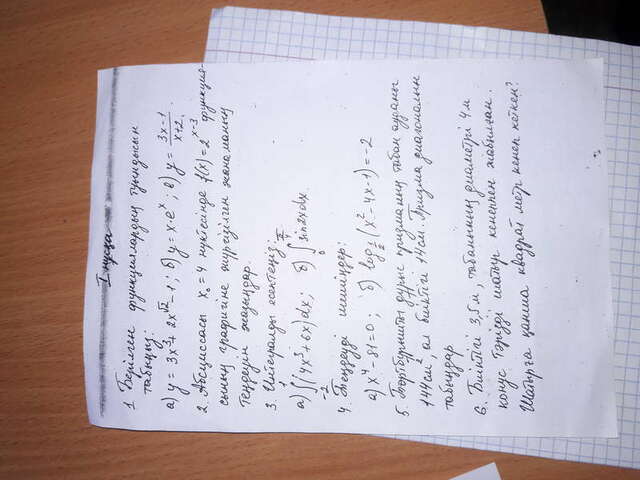 I нұсқа
1. Берілген функциялардың туындысын
табыңыз:
а) y = 3x³ + 2x^√2 − 1 ; б) y = x·eˣ ; в) y = (3x−1)/(x+2).
2. Абсциссасы x₀ = 4 нүктесінде f(x) = 2^(x−3) функция-
сының графигіне жүргізілген жанаманың
теңдеуін жазыңдар.
3. Интегралды есептеңіз:
а) ∫₋₂¹ (4x³ + 6x) dx ; б) ∫₀^(π/4) sin2x dx.
4. Теңдеуді шешіңдер:
а) x⁴ − 81 = 0 ; б) log_(1/2) (x² − 4x − 1) = −2
5. Төртбұрышты дұрыс призманың табан ауданы
144 см², ал биіктігі 14 см. Призма диагоналын
табыңдар
6. Биіктігі 3,5 м, табанының диаметрі 4 м
конус тәрізді шатыр кенеппен жабылған.
Шатырға қанша квадрат метр кенеп кеткен?